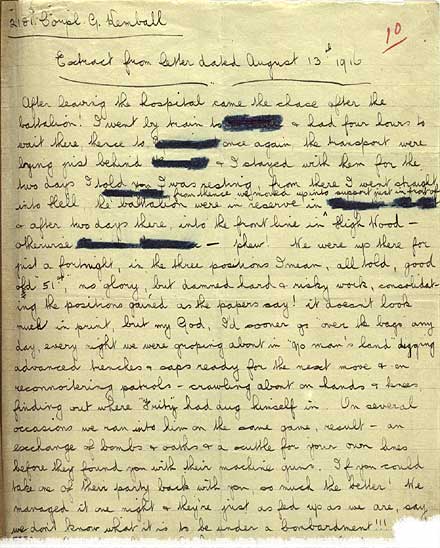 2181. Corpl. G. Kemball
10
Extract from letter dated August 13th 1916
After leaving the hospital came the chase after the
battalion! I went by train to & had four hours to
wait there, thence to once again the transport were
lying just behind & I stayed with them for the
two days I told you I was resting, from there I went straight
from thence we moved up into support just in front of
into Hell. the battalion were in reserve in
& after two days there, into the front line in High Wood —
otherwise — phew! We were up there for
just a fortnight, in the three positions I mean, all told, good
old 51st, no glory, but damned hard & risky work, consolidat-
ing the positions gained as the papers say! it doesn't look
much in print, but my God, I'd sooner go over the bags any
day, every night we were groping about in "No man's land" digging
advanced trenches & saps ready for the next move & on
reconnoitering patrols — crawling about on hands & knees
finding out where "Fritz" had dug himself in. On several
occasions we ran into him on the same game, result — an
exchange of bombs & oaths & a scuttle for your own lines
before they found you with their machine guns. If you could
take one of their party back with you so much the better! We
managed it one night & they're just as fed up as we are, say
we don't know what it is to be under a bombardment!!!